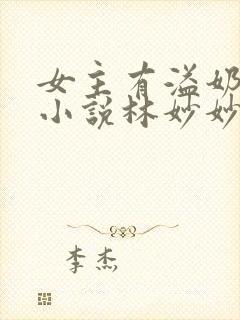 女主有溢奶
小说林妙妙
李杰